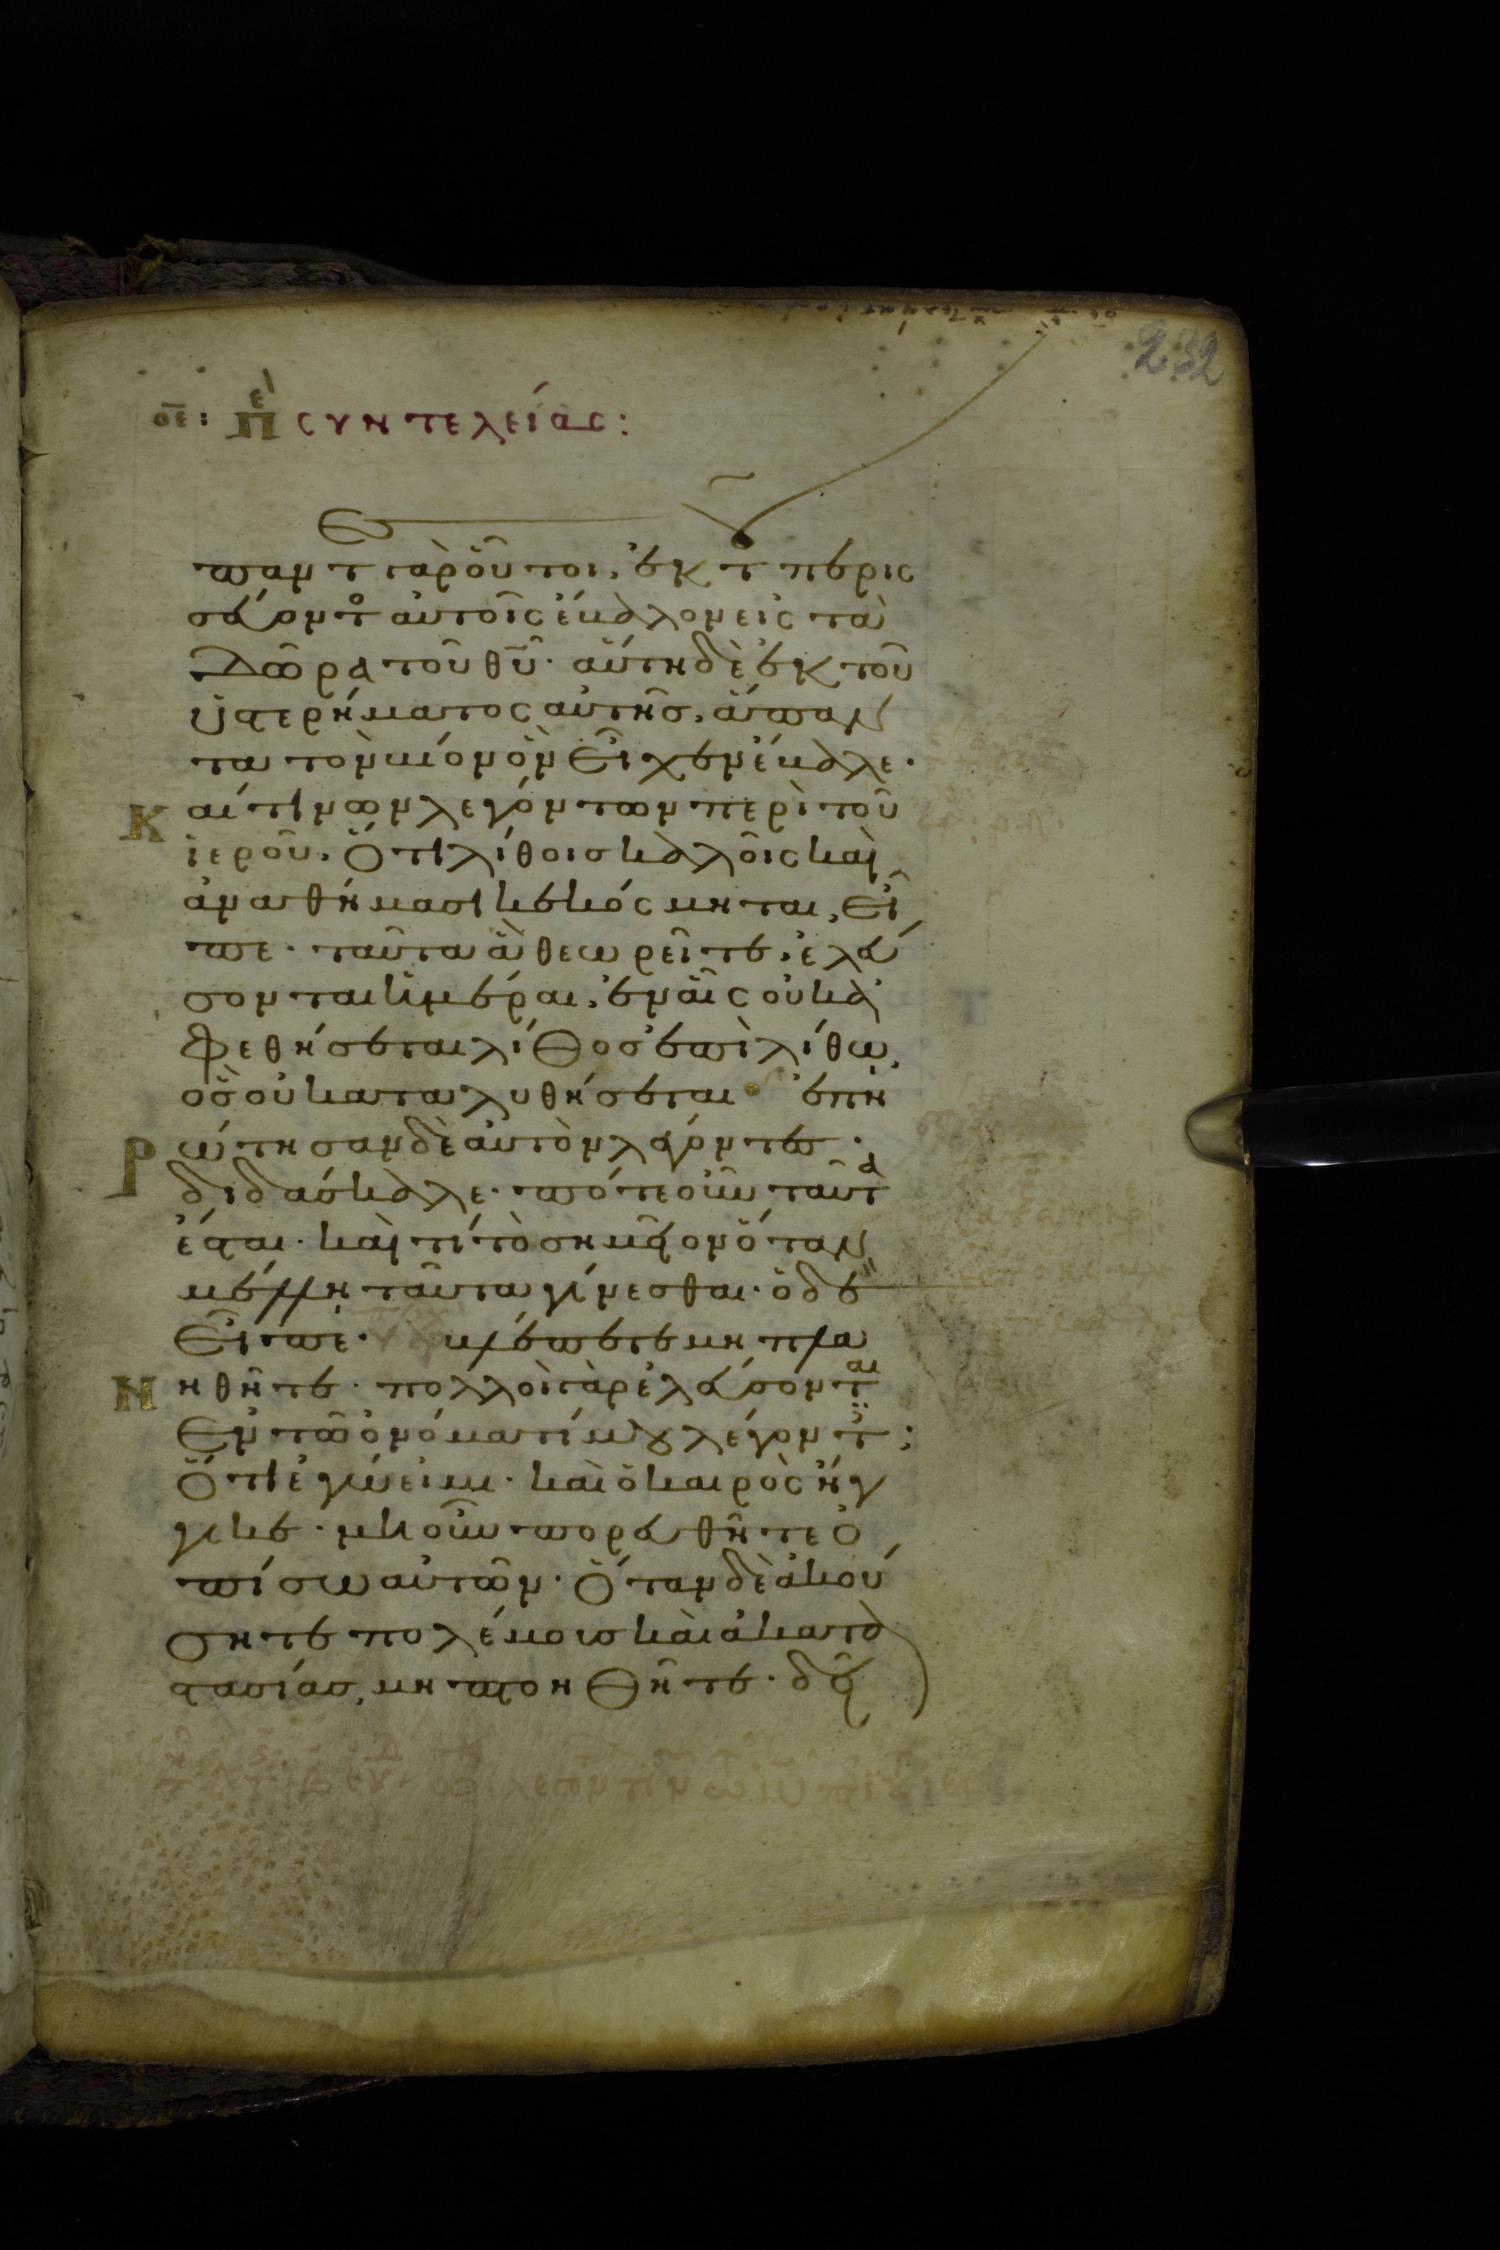 232
οε: Περὶ συντελείας:
παντ γὰρ οὗτοι, ἐκ τ περις
σεύοντ αὐτοῖς ἔβαλον εἰς τὰ
δῶρα τοῦ θῦ· αὕτη δὲ ἐκ τοῦ
ὑστερήματος αὐτῆς, ἅπαν
τα τὸν βίον ὃν εἶχεν ἔβαλε·
Καί τινων λεγόντων περὶ τοῦ
ἱεροῦ, Ὅτι λίθοις καλοῖς καὶ
ἀναθήμασι κεκόσμηται, εἶ
πε· ταῦτα ἃ θεωρεῖτε, ἐλεύ
σονται ἡμέραι, ἐν αἷς οὐκ ἀ
φεθήσεται λίθος ἐπὶ λίθω,
ὃς οὐ καταλυθήσεται· ἐπη
Ρώτησαν δὲ αὐτὸν λέγοντες·
διδάσκαλε· πότε οὖν ταῦτα
ἔσται· καὶ τί τὸ σημεῖον ὅταν
μέλλη ταῦτα γίνεσθαι· ὁ δὲ
εἶπε· βλέπετε μὴ πλα
Νηθῆτε· πολλοὶ γὰρ ἐλεύσονται
ἐν τῶ ὀνόματί μου λέγοντ;
Ὅτι ἐγώ εἰμι· καὶ ὁ καιρὸς ἤγ
γικε· μὴ οὖν πορευθῆτε ὀ
πίσω αὐτῶν· Ὅταν δὲ ἀκού
σητε πολέμους καὶ ἀκατα
στασίας, μὴ πτοηθῆτε· δεῖ